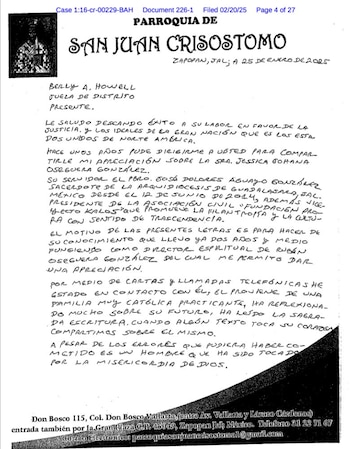 Case 1:16-cr-00229-BAH Document 226-1 Filed 02/20/25 Page 4 of 27
PARROQUIA DE
SAN JUAN CRISOSTOMO
ZAPOPAN, JAL; A 25 DE ENERO DE 2025
BERLLY A. HOWELL
JUEZA DE DISTRITO
PRESENTE.
LE SALUDO DESEANDO ÉXITO A SU LABOR EN FAVOR DE LA
JUSTICIA, Y LOS IDEALES DE LA GRAN NACIÓN QUE ES LA ESTA
DOS UNIDOS DE NORTE AMÉRICA.
HACE UNOS AÑOS PUDE DIRIGIRME A USTED PARA COMPAR
TIRLE MI APRECIACIÓN SOBRE LA SRA. JESSICA JOHANA
OSEGUERA GONZÁLEZ.
SU SERVIDOR EL PBRO. JOSÉ DOLORES AGUAYO GONZÁLEZ
SACERDOTE DE LA ARQUIDIÓCESIS DE GUADALAJARA, JAL.
MÉXICO DESDE EL 12 DE JUNIO DE ADEMÁS VICE
PRESIDENTE DE LA ASOCIACIÓN CIVIL "FUNDACIÓN PRO
YECTO KALOS" QUE PROMUEVE LA FILANTROPÍA Y LA
CON SENTIDO DE TRASCENDENCIA.
EL MOTIVO DE LAS PRESENTES LETRAS ES PARA HACER DE
SU CONOCIMIENTO QUE LLEVO YA DOS AÑOS Y MEDIO
FUNGIENDO COMO DIRECTOR ESPIRITUAL DE RUBÉN
OSEGUERA GONZÁLEZ DEL CUAL ME PERMITO DAR
UNA APRECIACIÓN.
POR MEDIO DE CARTAS Y LLAMADAS TELEFÓNICAS HE
ESTADO EN CONTACTO CON ÉL, EL PROVIENE DE UNA
FAMILIA MUY CATÓLICA PRACTICANTE, HA REFLEXIONA
DO MUCHO SOBRE SU FUTURO, HA LEÍDO LA SAGRA
DA ESCRITURA, CUANDO ALGÚN TEXTO TOCA SU CORAZÓN
COMPARTIMOS SOBRE EL MISMO.
A PESAR DE LOS ERRORES QUE PUDIERA HABER CO
METIDO ES UN HOMBRE QUE HA SIDO TOCADO
POR LA MISERICORDIA DE DIOS.
Don Bosco 115, Col. Don Bosco Vallarta (entre Av. Vallarta y Lázaro Cárdenas)
entrada también por la Gran Plaza C.P. 45049, Zapopan Jal, México. Teléfono 31 22 71 07
Correo Electrónico: parroquiasanjuancrisostomo1@gmail.com